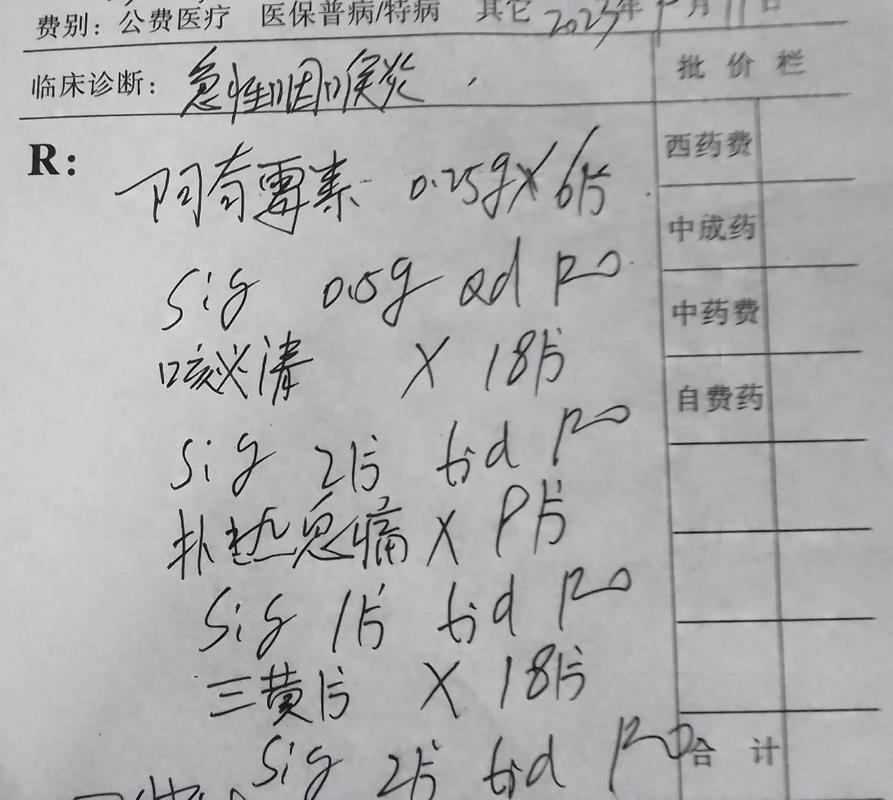 费别：公费医疗 医保普病/特病 其它 2023年9月11日
临床诊断：急性咽喉炎
批价栏
R：
阿奇霉素 0.25g×6片
Sig 0.5g Qd Po
咳必清 × 18片
Sig 2片 tid Po
扑热息痛 × 9片
Sig 1片 tid Po
三黄片 × 18片
Sig 2片 tid Po
西药费
中成药
中药费
自费药
合计